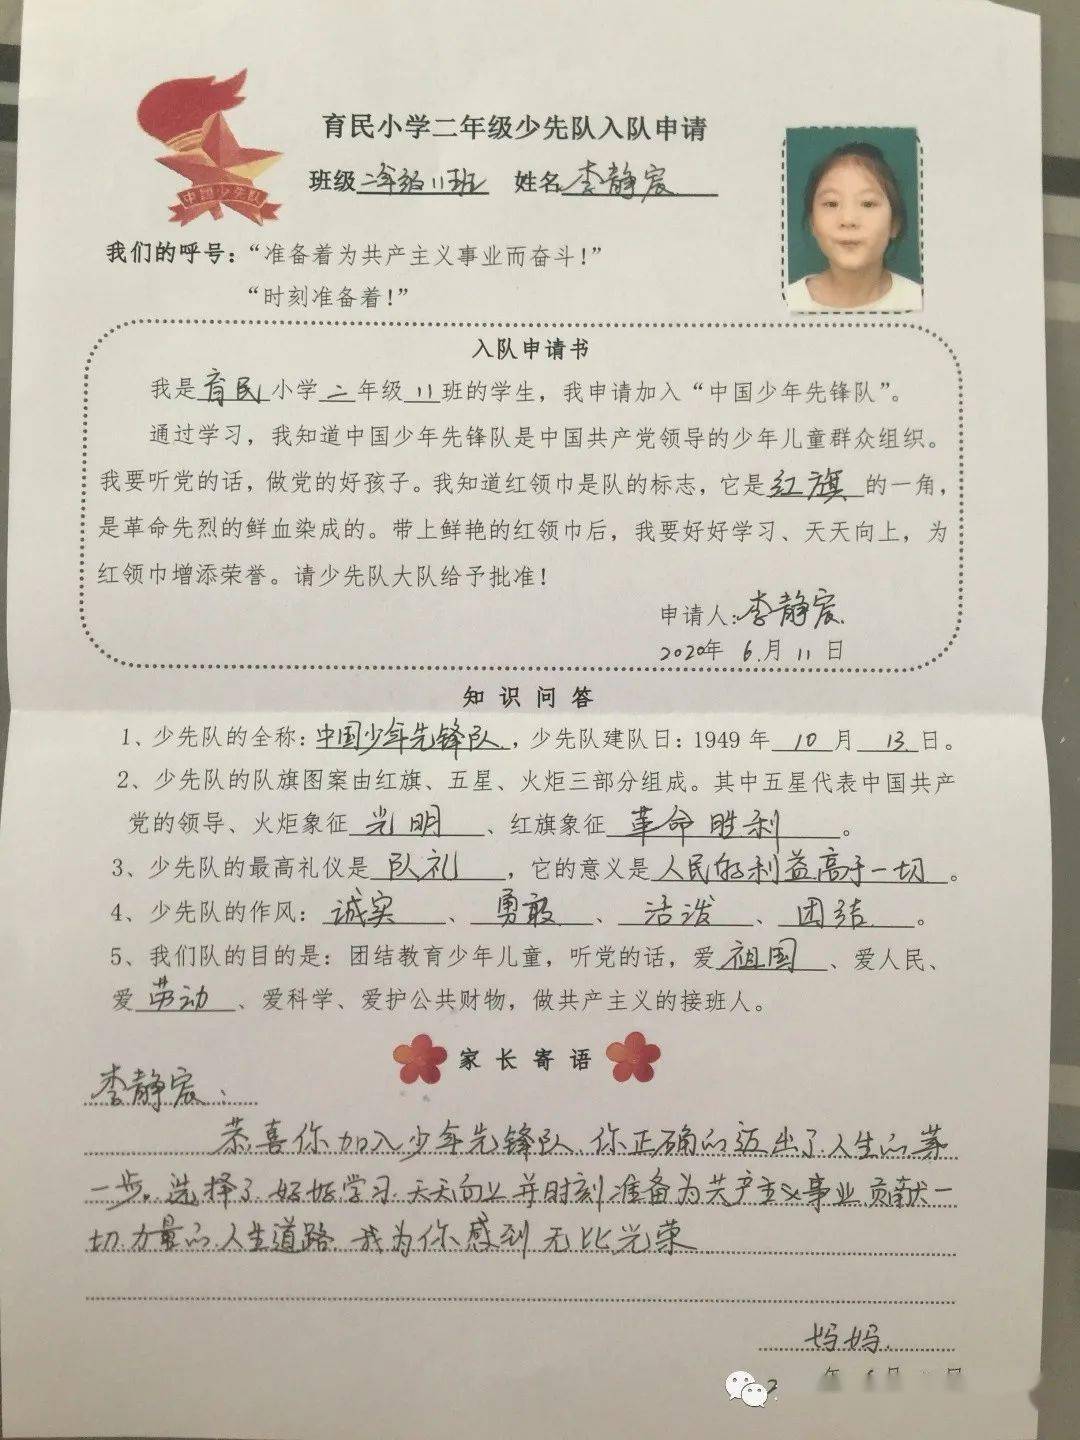 育民小学二年级少先队入队申请
班级二年级11班 姓名李静宸
中国少先队
我们的呼号：“准备着为共产主义事业而奋斗！”
“时刻准备着！”
入队申请书
我是育民小学二年级11班的学生，我申请加入“中国少年先锋队”。
通过学习，我知道中国少年先锋队是中国共产党领导的少年儿童群众组织。
我要听党的话，做党的好孩子。我知道红领巾是队的标志，它是红旗的一角，
是革命先烈的鲜血染成的。带上鲜艳的红领巾后，我要好好学习、天天向上，为
红领巾增添荣誉。请少先队大队给予批准！
申请人：李静宸
2020年 6月 11日
知识问答
1、少先队的全称：中国少年先锋队，少先队建队日：1949年10月13日。
2、少先队的队旗图案由红旗、五星、火炬三部分组成。其中五星代表中国共产
党的领导、火炬象征光明、红旗象征革命胜利。
3、少先队的最高礼仪是队礼，它的意义是人民的利益高于一切。
4、少先队的作风：诚实、勇敢、活泼、团结。
5、我们队的目的是：团结教育少年儿童，听党的话，爱祖国、爱人民、
爱劳动、爱科学、爱护公共财物，做共产主义的接班人。
家长寄语
李静宸：
恭喜你加入少年先锋队，你正确的迈出了人生的第
一步。选择了好好学习 天天向上 并时刻准备为共产主义事业贡献一
切力量的人生道路 我为你感到无比光荣
妈妈